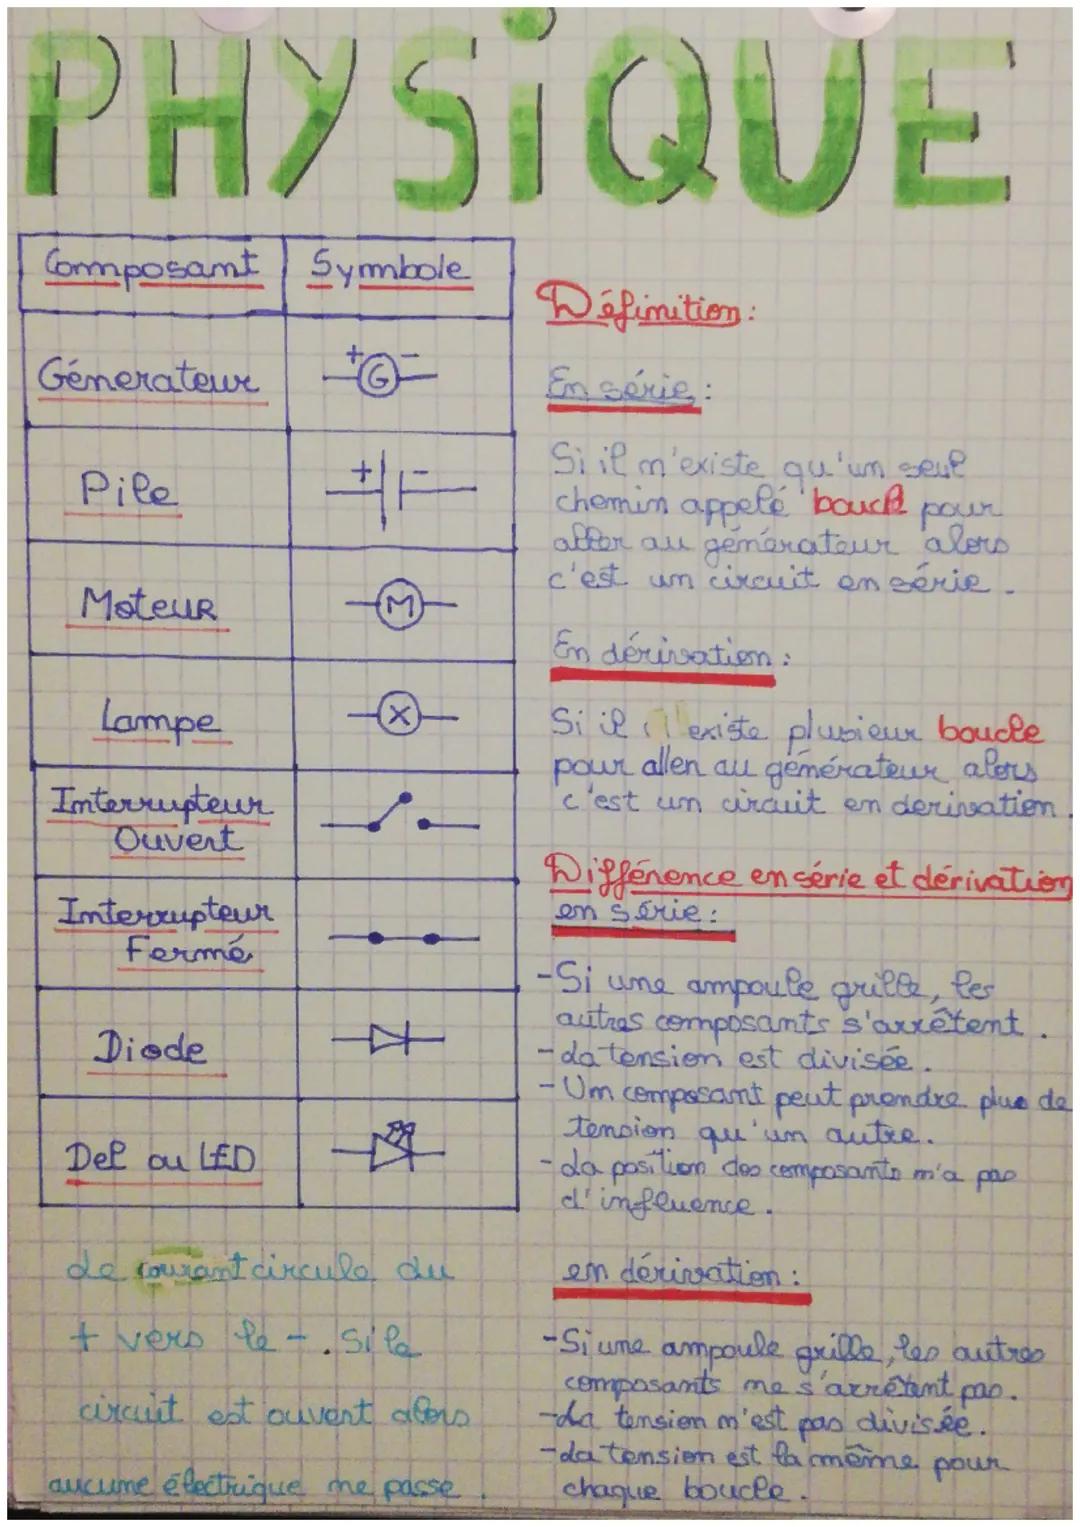 PHYSiQUE
Composant Symbole
Génerateur + G -
Pile + -
Moteur M
Lampe
Interrupteur
Ouvert
Interrupteur
Fermé
Diode
Del ou LED
Le courant circule du
+ vers le - . Si le
circuit est ouvert alors
aucune électrique ne passe.
Définition :
En série :
Si il n'existe qu'un seul
chemin appelé boucle pour
aller au générateur alors
c'est un circuit en série.
En dérivation :
Si il existe plusieur boucle
pour aller au générateur alors
c'est un circuit en derivation.
Différence en série et dérivation
en série :
-Si une ampoule grille, les
autres composants s'arrêtent.
-La tension est divisée.
-Un composant peut prendre plus de
tension qu'un autre.
-La position des composants n'a pas
d'influence.
en dérivation :
-Si une ampoule grille, les autres
composants ne s'arrêtent pas.
-La tension n'est pas divisée.
-La tension est la même pour
chaque boucle.